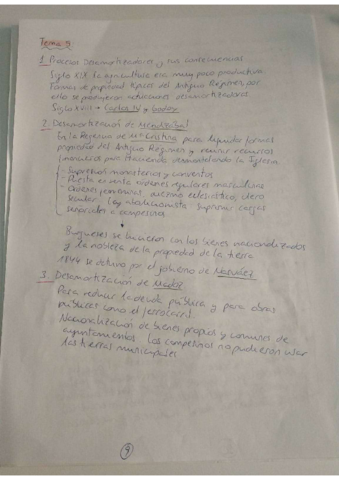 Tema 9
1. Proceso Desamortizadores y sus consecuencias
Siglo XIX la agricultura era muy poco productiva
Formas de propiedad típicas del Antiguo Régimen por
ello se produjeron actuaciones desamortizadoras
Siglo XVIII → Carlos IV y Godoy
2. Desamortización de Mendizábal
En la Regencia de Mª Cristina para liquidar formas
propiedad del Antiguo Régimen y reunir recursos
financieros para Hacienda desmantelando la Iglesia
- Supresión monasterios y conventos
- Puesta en venta órdenes regulares masculinas
- diezmo eclesiástico, clero
secular. Ley suprimir cargas
señoriales a campesinos
Burgueses se hicieron con los bienes nacionalizados
y la nobleza de la propiedad de la tierra
1844 se detuvo por el gobierno de Narváez
3. Desamortización de Madoz
Para reducir la deuda pública y para obras
públicas como el ferrocarril
Nacionalización de bienes propios y comunes de
ayuntamientos. Los campesinos no pudieron usar
las tierras municipales
9